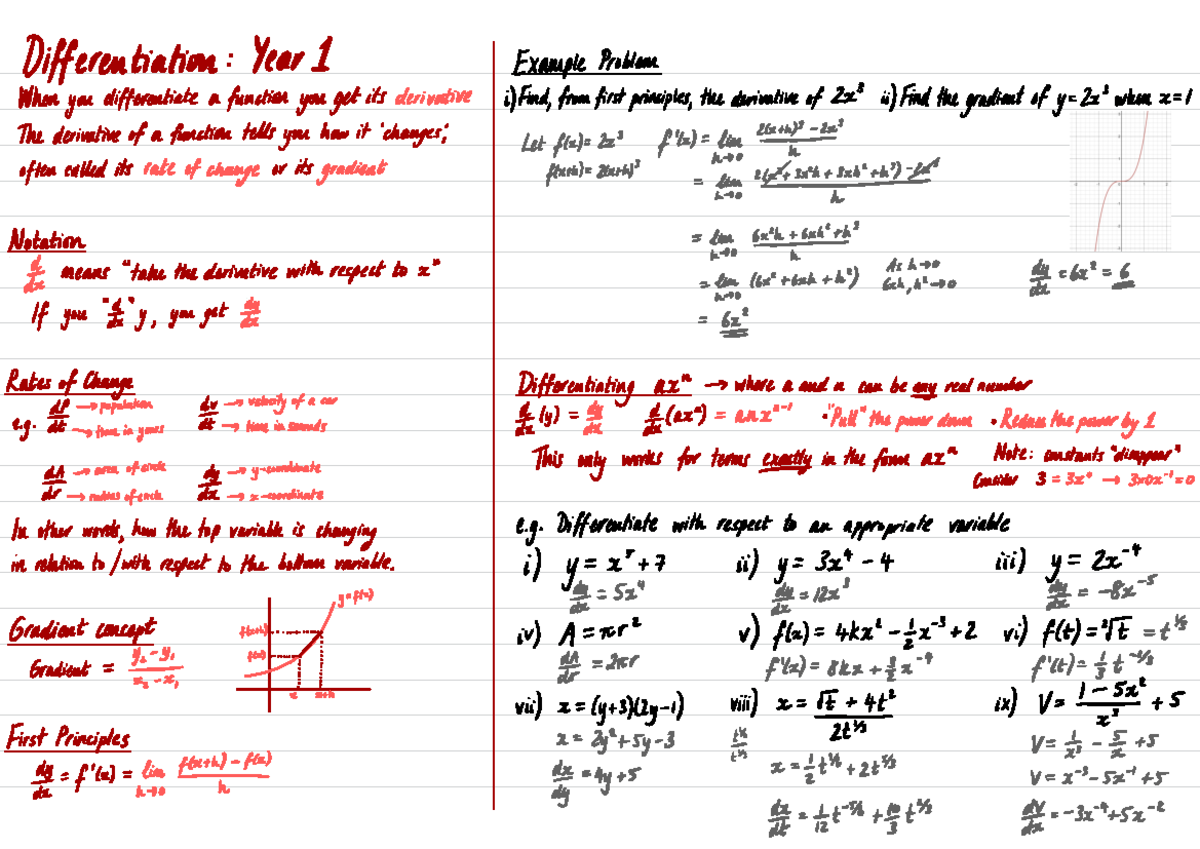 Differentiation: Year 1
When you differentiate a function you get its derivative
The derivative of a function tells you how it 'changes',
often called its rate of change or its gradient
Notation
d/dx means "take the derivative with respect to x"
If you "d/dx" y, you get dy/dx
Rates of Change
e.g. dP/dt → population → time in years
dv/dt → velocity of a car → time in seconds
dA/dr → area of circle → radius of circle
dy/dx → y-coordinate → x-coordinate
In other words, how the top variable is changing
in relation to / with respect to the bottom variable.
Gradient concept
Gradient = (y₂ - y₁)/(x₂ - x₁)
y=f(x)
f(x+h)
f(x)
x x+h
First Principles
dy/dx = f'(x) = lim h→0 (f(x+h) - f(x))/h
Example Problem
i) Find, from first principles, the derivative of 2x³ ii) Find the gradient of y=2x³ when x=1
Let f(x)=2x³ f'(x) = lim h→0 (2(x+h)³ - 2x³)/h
f(x+h)=2(x+h)³
= lim h→0 (2(x³ + 3x²h + 3xh² + h³) - 2x³)/h
= lim h→0 (6x²h + 6xh² + h³)/h
= lim h→0 (6x² + 6xh + h²) As h→0 6xh, h²→0
dy/dx = 6x² = 6
= 6x²
Differentiating axⁿ → where a and n can be any real number
d/dx (y) = dy/dx d/dx (axⁿ) = anxⁿ⁻¹ • "Pull" the power down • Reduce the power by 1
This only works for terms exactly in the form axⁿ Note: constants "disappear"
Consider 3 = 3x⁰ → 3×0x⁻¹=0
e.g. Differentiate with respect to an appropriate variable
i) y = x⁵ + 7 ii) y = 3x⁴ - 4 iii) y = 2x⁻⁴
dy/dx = 5x⁴ dy/dx = 12x³ dy/dx = -8x⁻⁵
iv) A = πr² v) f(x) = 4kx² - ½x⁻³ + 2 vi) f(t) = ³√t = t^(1/3)
dA/dr = 2πr f'(x) = 8kx + 3/2 x⁻⁴ f'(t) = 1/3 t^(-2/3)
vii) x = (y+3)(2y-1) viii) x = (√t + 4t²)/(2t^(1/3)) ix) V = (1 - 5x²)/x³ + 5
x = 2y² + 5y - 3 t^(1/2)/t^(1/3) V = 1/x³ - 5/x + 5
dx/dy = 4y + 5 x = 1/2 t^(1/6) + 2t^(5/3) V = x⁻³ - 5x⁻¹ + 5
dx/dt = 1/12 t^(-5/6) + 10/3 t^(2/3) dV/dx = -3x⁻⁴ + 5x⁻²